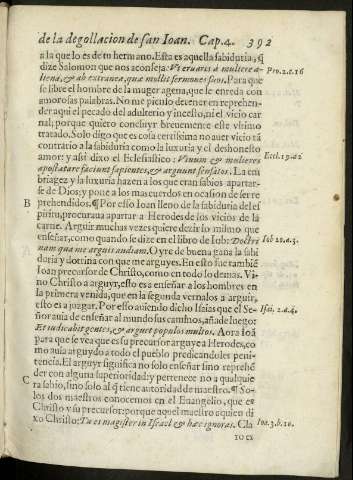 de la degollacion de san Ioan. Cap. 4. 392
a la que lo es de tu hermano. Esta es aquella sabiduria, q̃
dize Salomon que nos aconseja: Vt eruaris à muliere a- Pro. 2. c. 16
liena, & ab extranea, quæ mollit sermones suos. Para que
se libre el hombre de la muger agena, que le enreda con
amorosas palabras. No me pienso detener en reprehen-
der aqui el pecado del adulterio y incesto, ni el vicio car
nal; porque quiero concluyr brevemente este vltimo
tratado. Solo digo que es cosa certissima no auer vicio tã
contrario a la sabiduria como la luxuria y el deshonesto
amor: y assi dixo el Eclesiastico: Vinum & mulieres Eccl. 19. a 2
apostatare faciunt sapientes, & arguunt sensatos. La em
briagez y la luxuria hazen a los que eran sabios apartar-
se de Dios; y pone a los macuerdos en ocasion de ser re
B prehendidos. ¶ Por esso Ioan lleno de la sabiduria del es
piritu, procuraua apartar a Herodes de los vicios de la
carne. Arguir muchas vezes quiere dezir lo mismo que
enseñar, como quando se dize en el libro de Iob: Doctri Iob 20. a. 3.
nam qua me arguis audiam. Oyre de buena gana la sabi
duria y dotrina con que me arguyes. En esto fue tambiẽ
Ioan precursor de Christo, como en todo lo demas. Vi-
no Christo a arguyr, esto es a enseñar a los hombres en
la primera venida, que en la segunda vernalos a arguir,
esto es a juzgar. Por esso auiendo dicho Isaias que el Se- Isai. 2. a. 4.
ñor auia de enseñar al mundo sus caminos, añade luego:
Et iudicabit gentes, & arguet populos multos. Aora Ioã
para que se vea que es su precursor arguye a Herodes, co
mo auia arguydo a todo el pueblo predicandoles peni-
tencia. El arguyr significa no solo enseñar sino reprehẽ
der con alguna superioridad: y pertenece no a qualquie
C ra sabio, sino solo al q̃ tiene autoridad de maestro. ¶ So-
los dos maestros conocemos en el Euangelio, que es
Christo y su precursor: porque aquel maestro a quien di
xo Christo: Tu es magister in Israel & hæc ignoras. Cla Ioa. 3. b. 10.
ro es